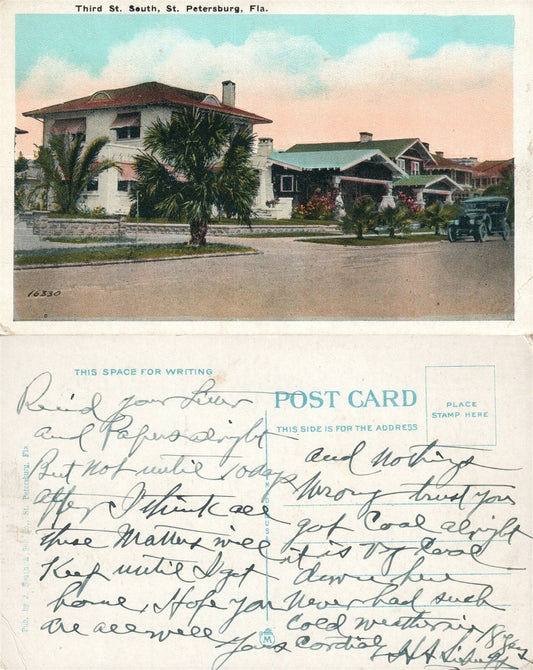 Third St. South, St. Petersburg, Fla.
16330
THIS SPACE FOR WRITING
POST CARD
THIS SIDE IS FOR THE ADDRESS
PLACE
STAMP HERE
Rec'd your Letter
and Papers alright
But not until 10 days
after I think all
those Matters will
Keep until I get
home, Hope you
are all well
and nothing
Wrong trust you
got Coal alright
it is Very Cool
down here
Never had such
Cold weather in 18 yrs
Yours Cordial